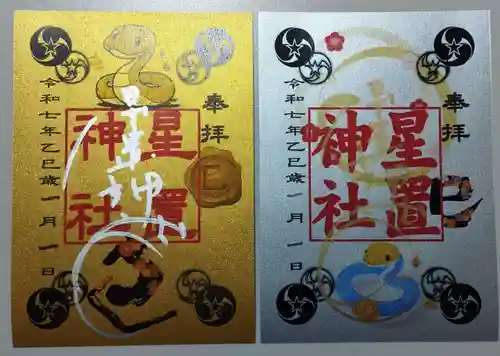 奉拝
星置神社
星置神社
巳
令和七年乙巳歳一月一日
奉拝
星置神社
巳
令和七年乙巳歳一月一日